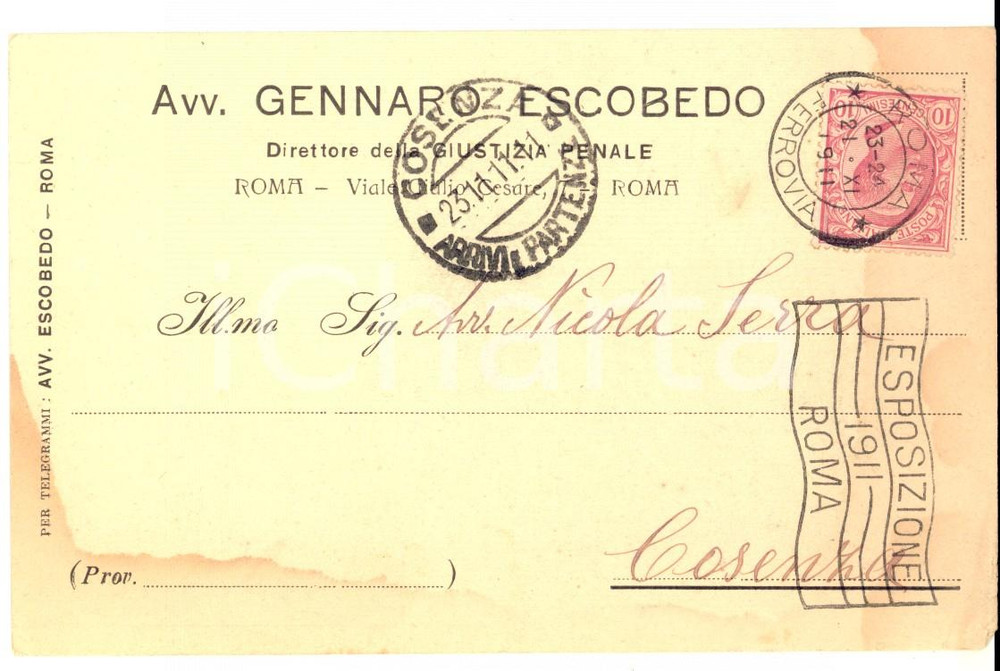 Avv. GENNARO ESCOBEDO
Direttore della GIUSTIZIA PENALE
ROMA – Viale Giulio Cesare, ROMA
PER TELEGRAMMI : AVV. ESCOBEDO — ROMA
COSENZA
23.11.11
ARRIVI PARTENZE
ROMA
23-24
21 · XI
1911
FERROVIA
10 CENTESIMI 10
POSTE ITALIANE
Ill.mo Sig. Avv. Nicola Serra
ESPOSIZIONE
1911
ROMA
Cosenza
(Prov. )
iCharta